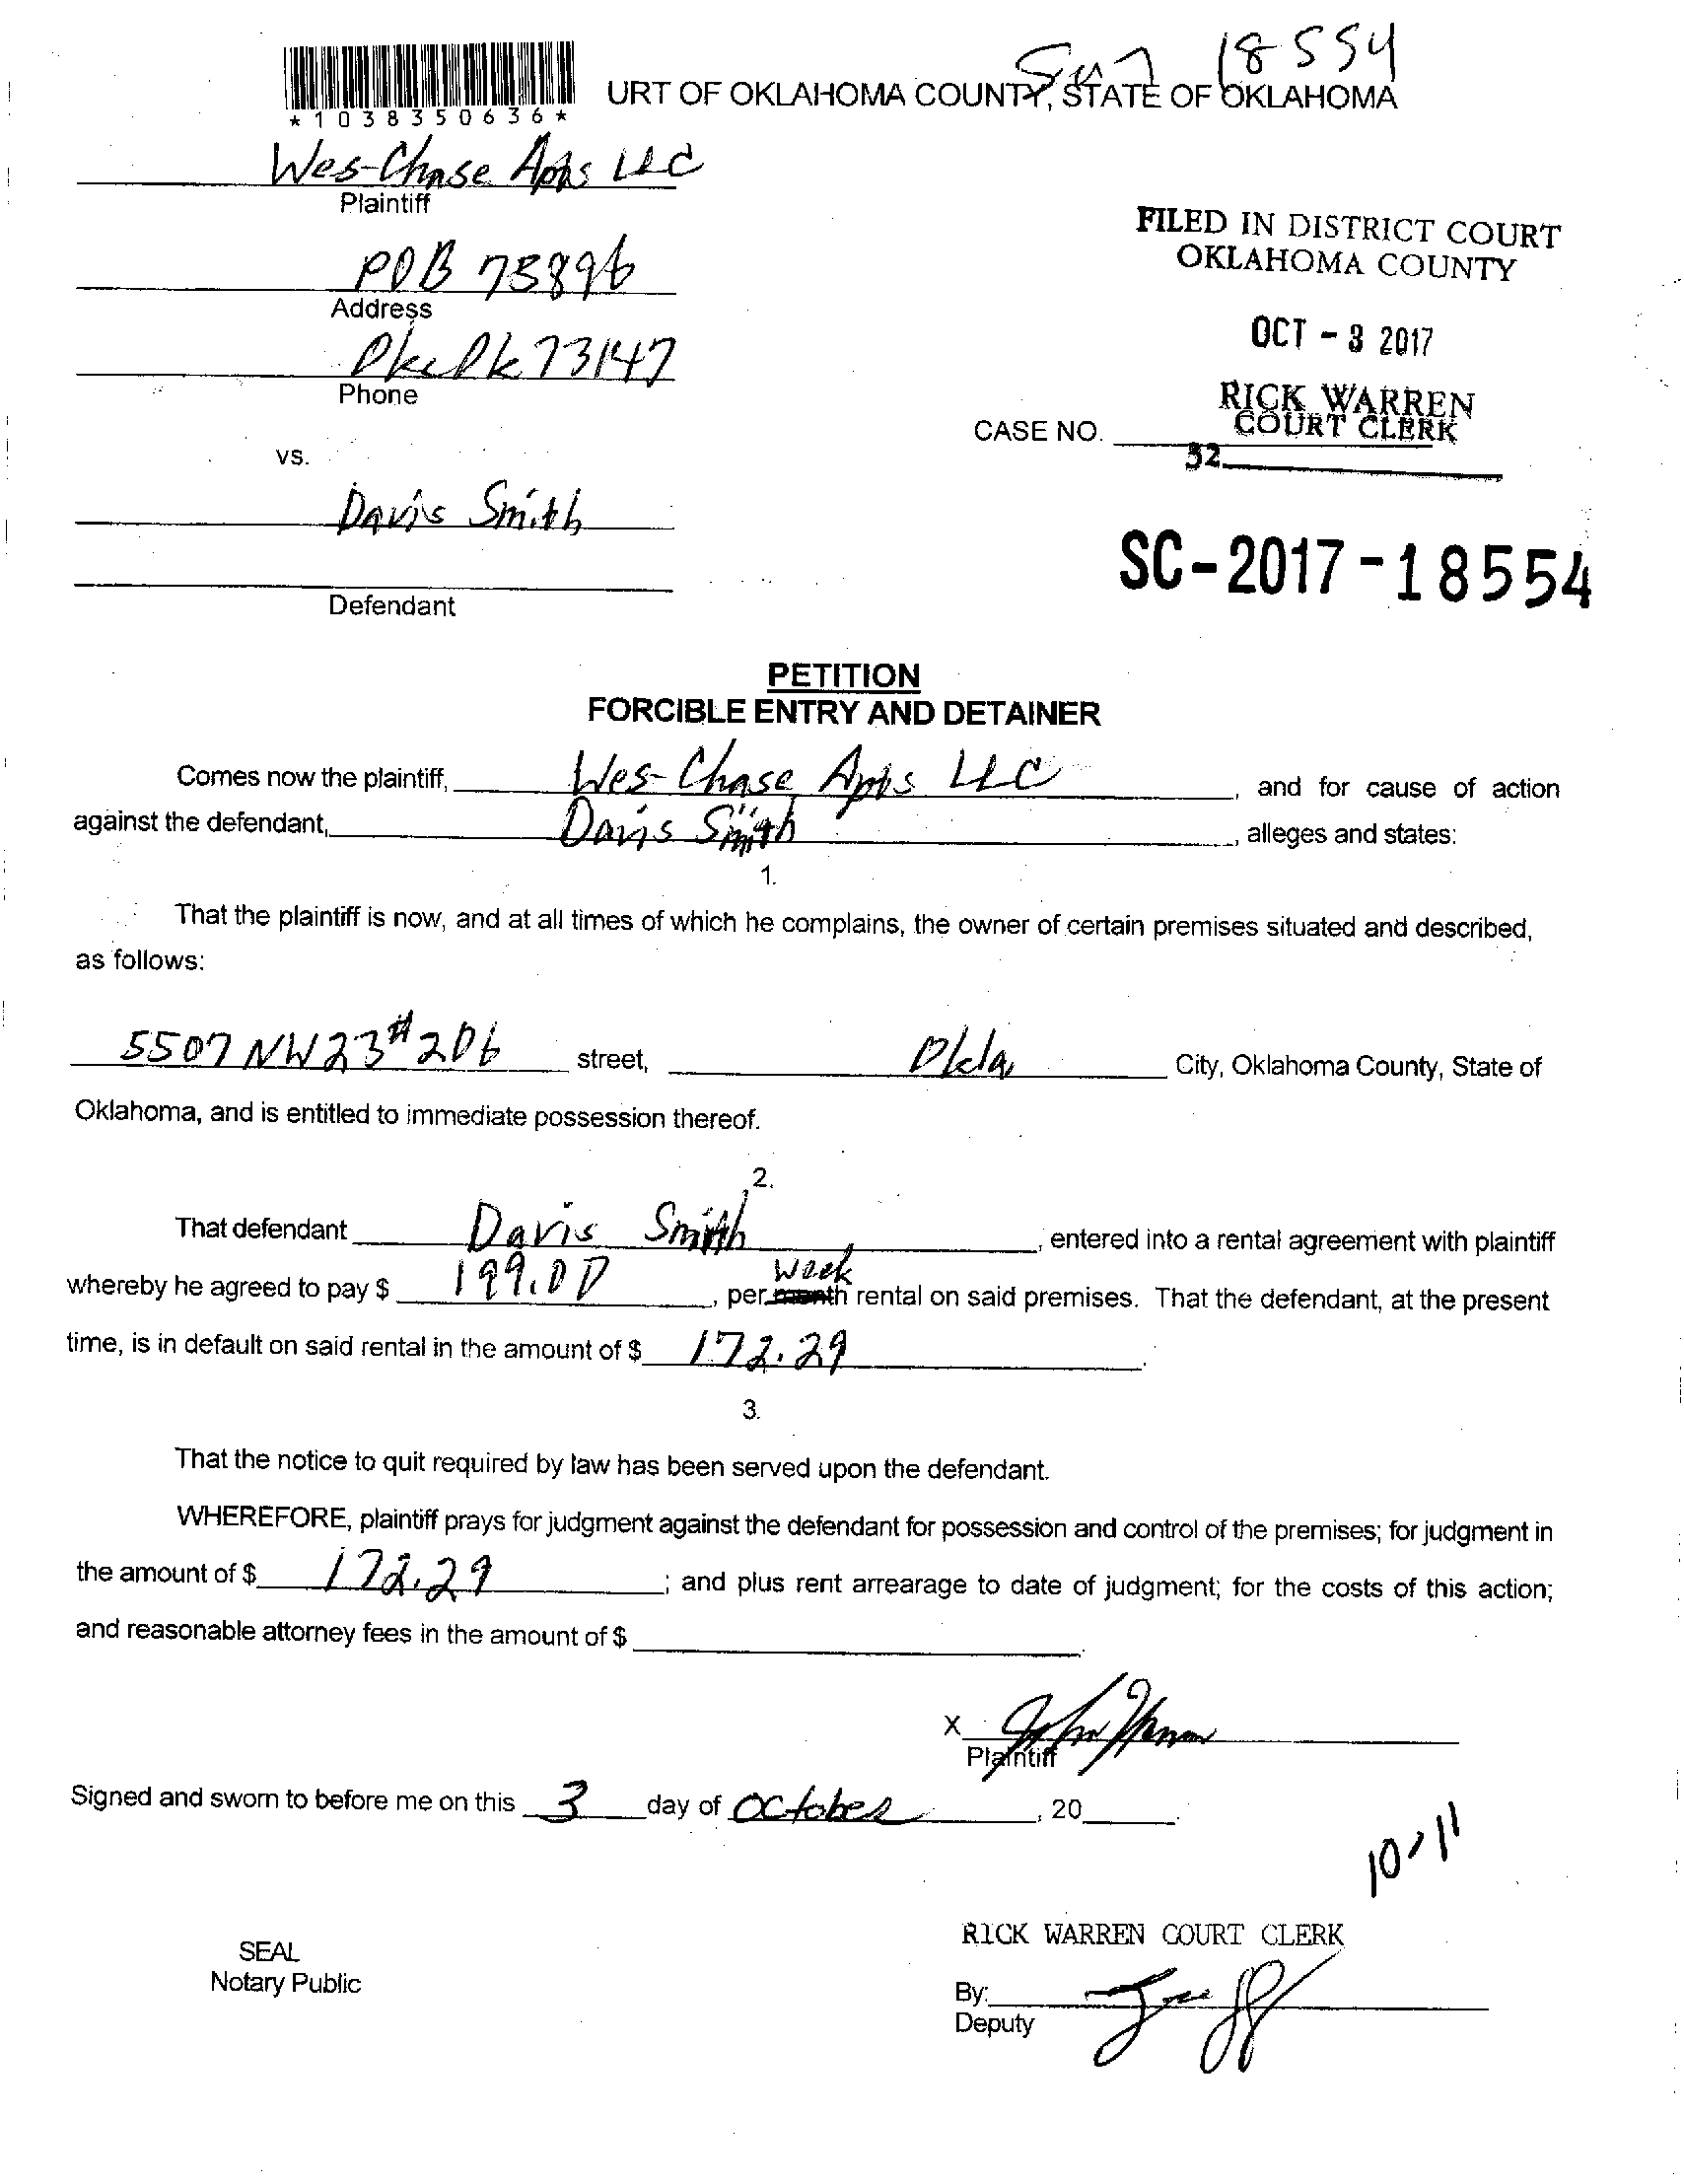 18554
URT OF OKLAHOMA COUNTY, STATE OF OKLAHOMA
*1038350636*
Wes-Chase Apts LLC
Plaintiff
POB 75896
Address
Okc Ok 73147
Phone
vs.
Davis Smith
Defendant
FILED IN DISTRICT COURT
OKLAHOMA COUNTY
OCT - 3 2017
RICK WARREN
COURT CLERK
CASE NO.
32
SC-2017-18554
PETITION
FORCIBLE ENTRY AND DETAINER
Comes now the plaintiff, Wes-Chase Apts LLC, and for cause of action
against the defendant, Davis Smith, alleges and states:
1.
That the plaintiff is now, and at all times of which he complains, the owner of certain premises situated and described,
as follows:
5507 NW 23 #206 street, Okla, City, Oklahoma County, State of
Oklahoma, and is entitled to immediate possession thereof.
2.
That defendant Davis Smith, entered into a rental agreement with plaintiff
whereby he agreed to pay $ 199.00, per month week rental on said premises. That the defendant, at the present
time, is in default on said rental in the amount of $ 172.29.
3.
That the notice to quit required by law has been served upon the defendant.
WHEREFORE, plaintiff prays for judgment against the defendant for possession and control of the premises; for judgment in
the amount of $ 172.29; and plus rent arrearage to date of judgment; for the costs of this action;
and reasonable attorney fees in the amount of $ .
X
Plaintiff
Signed and sworn to before me on this 3 day of October, 20
10-11
RICK WARREN COURT CLERK
SEAL
Notary Public
By:
Deputy